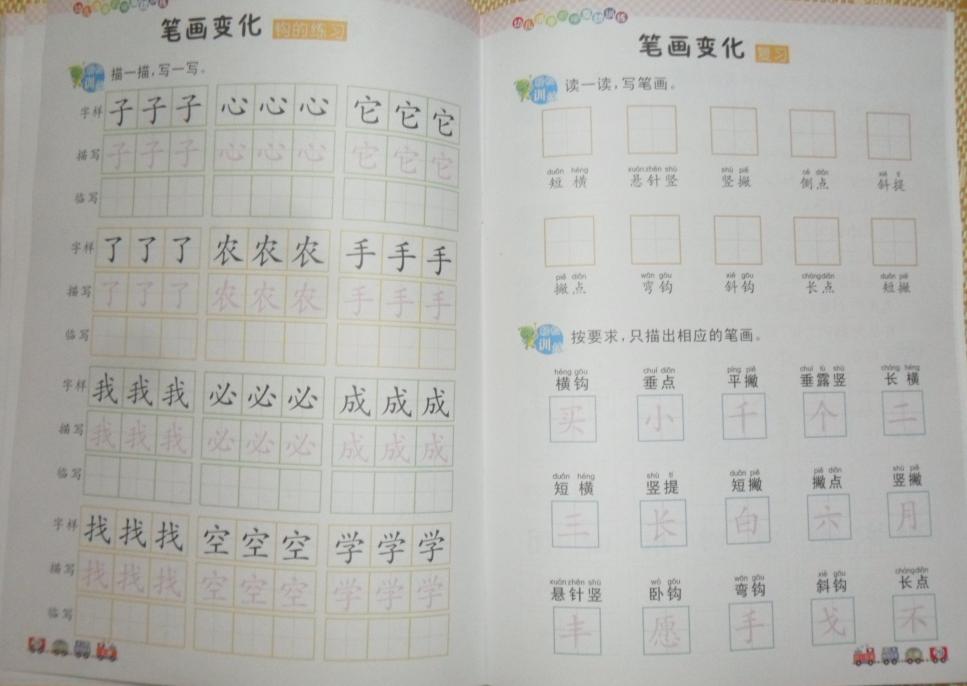 笔画变化 钩的练习
描一描，写一写。
字样 子 子 子 心 心 心 它 它 它
描写 子 子 子 心 心 心 它 它 它
临写
字样 了 了 了 农 农 农 手 手 手
描写 了 了 了 农 农 农 手 手 手
临写
字样 我 我 我 必 必 必 成 成 成
描写 我 我 我 必 必 必 成 成 成
临写
字样 找 找 找 空 空 空 学 学 学
描写 找 找 找 空 空 空 学 学 学
临写
笔画变化 复习
读一读，写笔画。
duǎn héng xuán zhēn shù shù piě cè diǎn xié tí
短横 悬针竖 竖撇 侧点 斜提
piě diǎn wān gōu xié gōu cháng diǎn duǎn piě
撇点 弯钩 斜钩 长点 短撇
按要求，只描出相应的笔画。
héng gōu chuí diǎn píng piě chuí lù shù cháng héng
横钩 垂点 平撇 垂露竖 长横
买 小 千 个 三
duǎn héng shù tí duǎn piě piě diǎn shù piě
短横 竖提 短撇 撇点 竖撇
三 长 白 六 月
xuán zhēn shù wò gōu wān gōu xié gōu cháng diǎn
悬针竖 卧钩 弯钩 斜钩 长点
丰 愿 手 戈 不